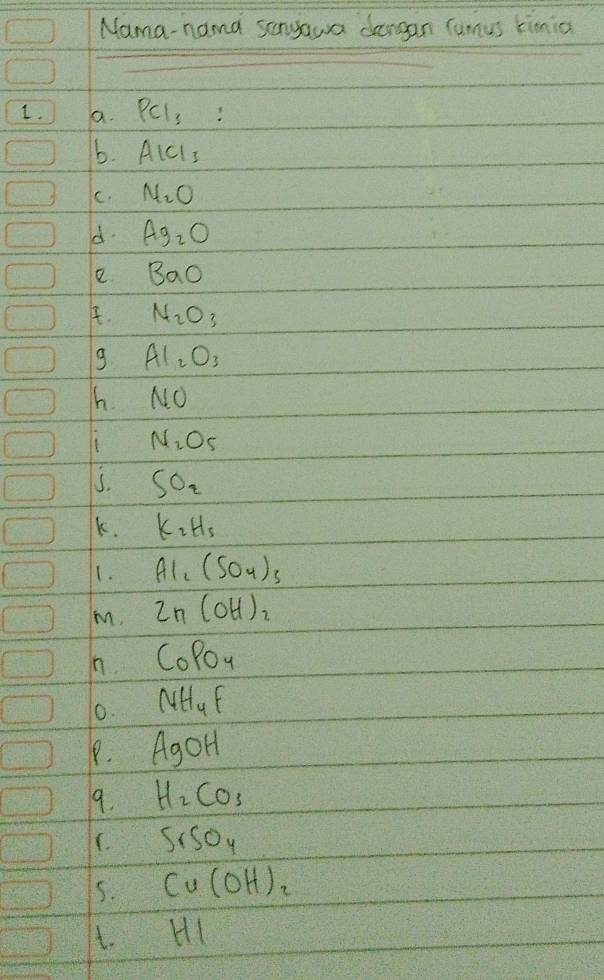 Nama-nama senyawa dengan rumus kimia
1. a. PCl₃ :
b. AlCl₃
c. N₂O
d. Ag₂O
e BaO
f. N₂O₃
g Al₂O₃
h. NO
i N₂O₅
j. SO₂
k. K₂H₅
l. Al₂(SO₄)₃
m. Zn(OH)₂
n. CoPO₄
o. NH₄F
p. AgOH
q. H₂CO₃
r. SrSO₄
s. Cu(OH)₂
t. HI